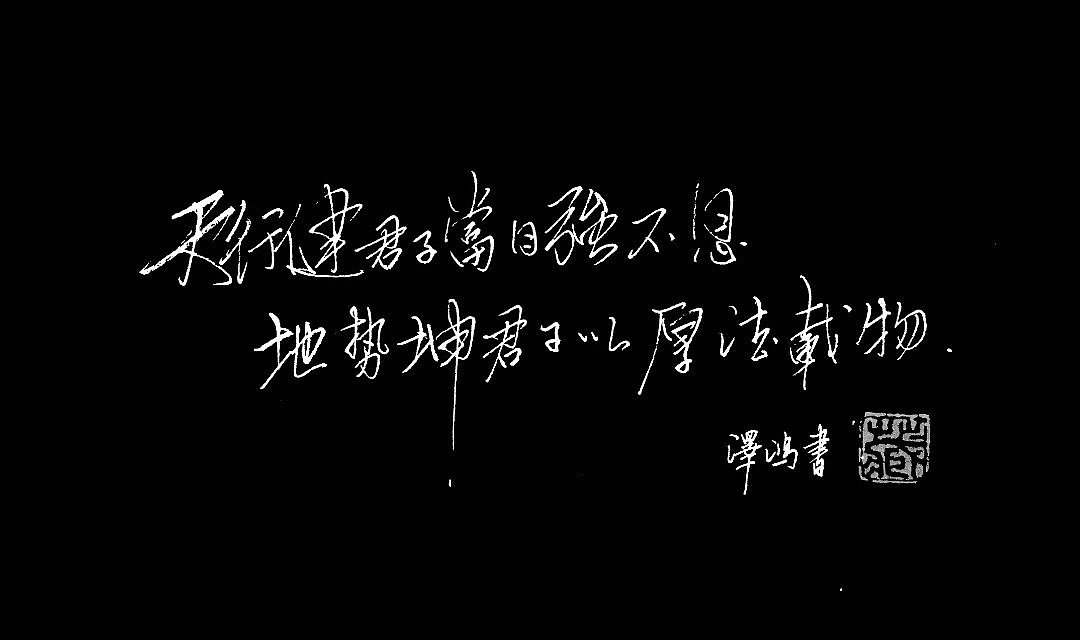 天行健君子當自強不息
地势坤君子以厚德載物.
澤鴻書